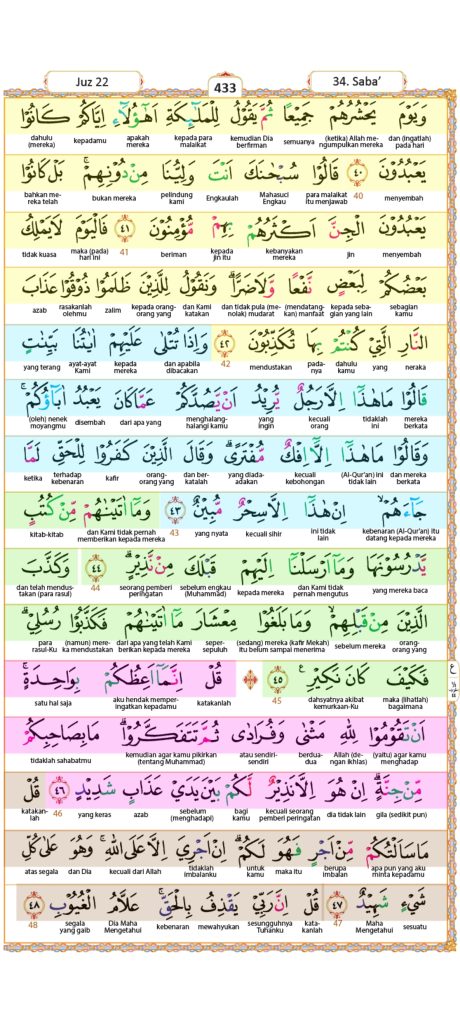 Juz 22
433
34. Saba’
وَيَوْمَ يَحْشُرُهُمْ جَمِيْعًا ثُمَّ يَقُوْلُ لِلْمَلٰۤىِٕكَةِ اَهٰٓؤُلَاۤءِ اِيَّاكُمْ كَانُوْا
dan (ingatlah) pada hari (ketika) Allah me-ngumpulkan mereka semuanya kemudian Dia berfirman kepada para malaikat apakah mereka kepadamu dahulu (mereka)
يَعْبُدُوْنَ ٤٠ قَالُوْا سُبْحٰنَكَ اَنْتَ وَلِيُّنَا مِنْ دُوْنِهِمْ ۚ بَلْ كَانُوْا
menyembah 40 para malaikat itu menjawab Mahasuci Engkau Engkaulah pelindung kami bukan mereka bahkan me-reka telah
يَعْبُدُوْنَ الْجِنَّ ۚ اَكْثَرُهُمْ بِهِمْ مُّؤْمِنُوْنَ ٤١ فَالْيَوْمَ لَا يَمْلِكُ
menyembah jin kebanyakan mereka kepada jin itu beriman 41 maka (pada) hari ini tidak kuasa
بَعْضُكُمْ لِبَعْضٍ نَّفْعًا وَّلَا ضَرًّا ۗ وَنَقُوْلُ لِلَّذِيْنَ ظَلَمُوْا ذُوْقُوْا عَذَابَ
sebagian kamu kepada seba-gian yang lain (mendatang-kan) manfaat dan tidak pula (me-nolak) mudarat dan Kami katakan kepada orang-orang yang zalim rasakanlah olehmu azab
النَّارِ الَّتِيْ كُنْتُمْ بِهَا تُكَذِّبُوْنَ ٤٢ وَاِذَا تُتْلٰى عَلَيْهِمْ اٰيٰتُنَا بَيِّنٰتٍ
neraka yang dahulu kamu pada-nya mendustakan 42 dan apabila dibacakan kepada mereka ayat-ayat Kami yang terang
قَالُوْا مَا هٰذَآ اِلَّا رَجُلٌ يُّرِيْدُ اَنْ يَّصُدَّكُمْ عَمَّا كَانَ يَعْبُدُ اٰبَاۤؤُكُمْ ۚ
mereka berkata tidaklah ini kecuali orang yang ingin menghalang-halangi kamu dari apa yang disembah (oleh) nenek moyangmu
وَقَالُوْا مَا هٰذَآ اِلَّآ اِفْكٌ مُّفْتَرًىۗ وَقَالَ الَّذِيْنَ كَفَرُوْا لِلْحَقِّ لَمَّا
dan mereka berkata (Al-Qur'an) ini tidak lain kecuali kebohongan yang diada-adakan dan ber-katalah orang-orang yang kafir terhadap kebenaran ketika
جَاۤءَهُمْ ۙ اِنْ هٰذَآ اِلَّا سِحْرٌ مُّبِيْنٌ ٤٣ وَمَآ اٰتَيْنٰهُمْ مِّنْ كُتُبٍ
kebenaran (Al-Qur'an) itu datang kepada mereka ini tidak lain kecuali sihir yang nyata 43 dan Kami tidak pernah memberikan kepada mereka kitab-kitab
يَّدْرُسُوْنَهَا وَمَآ اَرْسَلْنَآ اِلَيْهِمْ قَبْلَكَ مِنْ نَّذِيْرٍۗ ٤٤ وَكَذَّبَ
yang mereka baca dan Kami tidak pernah mengutus kepada mereka sebelum engkau (Muhammad) seorang pemberi peringatan 44 dan telah mendus-takan (para rasul)
الَّذِيْنَ مِنْ قَبْلِهِمْۙ وَمَا بَلَغُوْا مِعْشَارَ مَآ اٰتَيْنٰهُمْ فَكَذَّبُوْا رُسُلِيْۗ
orang-orang yang sebelum mereka (sedang) mereka (kafir Mekah) itu belum sampai menerima seper-sepuluh dari apa yang telah Kami berikan kepada mereka (namun) mere-ka mendustakan para rasul-Ku
فَكَيْفَ كَانَ نَكِيْرِ ࣖ ٤٥ ۞ قُلْ اِنَّمَآ اَعِظُكُمْ بِوَاحِدَةٍۚ
maka (lihatlah) bagaimana dahsyatnya akibat kemurkaan-Ku 45 katakanlah aku hendak memper-ingatkan kepadamu satu hal saja
ع
اَنْ تَقُوْمُوْا لِلّٰهِ مَثْنٰى وَفُرَادٰى ثُمَّ تَتَفَكَّرُوْاۗ مَا بِصَاحِبِكُمْ
(yaitu) agar kamu menghadap Allah (de-ngan ikhlas) berdua-dua atau sendiri-sendiri kemudian agar kamu pikirkan (tentang Muhammad) tidaklah sahabatmu
مِّنْ جِنَّةٍۗ اِنْ هُوَ اِلَّا نَذِيْرٌ لَّكُمْ بَيْنَ يَدَيْ عَذَابٍ شَدِيْدٍ ٤٦ قُلْ
gila (sedikit pun) dia tidak lain kecuali seorang pemberi peringatan bagi kamu sebelum (menghadapi) azab yang keras 46 katakan-lah
مَا سَاَلْتُكُمْ مِّنْ اَجْرٍ فَهُوَ لَكُمْۗ اِنْ اَجْرِيَ اِلَّا عَلَى اللّٰهِۚ وَهُوَ عَلٰى كُلِّ
apa pun yang aku minta kepadamu berupa imbalan maka itu untuk kamu tidaklah imbalanku kecuali dari Allah dan Dia atas segala
شَيْءٍ شَهِيْدٌ ٤٧ قُلْ اِنَّ رَبِّيْ يَقْذِفُ بِالْحَقِّۚ عَلَّامُ الْغُيُوْبِ ٤٨
sesuatu Maha Mengetahui 47 kata-kanlah sesungguhnya Tuhanku mewahyukan kebenaran Dia Maha Mengetahui segala yang gaib 48